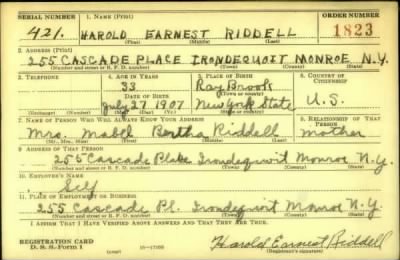 SERIAL NUMBER 1. NAME (Print) ORDER NUMBER
421. HAROLD EARNEST RIDDELL 1823
(First) (Middle) (Last)
2. ADDRESS (Print)
255 CASCADE PLACE IRONDEQUOIT MONROE N.Y.
(Number and street or R. F. D. number) (Town) (County) (State)
3. TELEPHONE 4. AGE IN YEARS 5. PLACE OF BIRTH 6. COUNTRY OF CITIZENSHIP
33 Ray Brook
DATE OF BIRTH (Town or county)
July 27 1907 New York State U.S.
(Exchange) (Number) (Mo.) (Day) (Yr.) (State or country)
7. NAME OF PERSON WHO WILL ALWAYS KNOW YOUR ADDRESS 8. RELATIONSHIP OF THAT PERSON
Mrs. Mabel Bertha Riddell Mother
(Mr., Mrs., Miss) (First) (Middle) (Last)
9. ADDRESS OF THAT PERSON
255 Cascade Place Irondequoit Monroe N.Y.
(Number and street or R. F. D. number) (Town) (County) (State)
10. EMPLOYER'S NAME
Self
11. PLACE OF EMPLOYMENT OR BUSINESS
255 Cascade Pl. Irondequoit Monroe N.Y.
(Number and street or R. F. D. number) (Town) (County) (State)
I AFFIRM THAT I HAVE VERIFIED ABOVE ANSWERS AND THAT THEY ARE TRUE.
REGISTRATION CARD
D. S. S. Form 1 (over) 16-17105 Harold Earnest Riddell
(Registrant's signature)